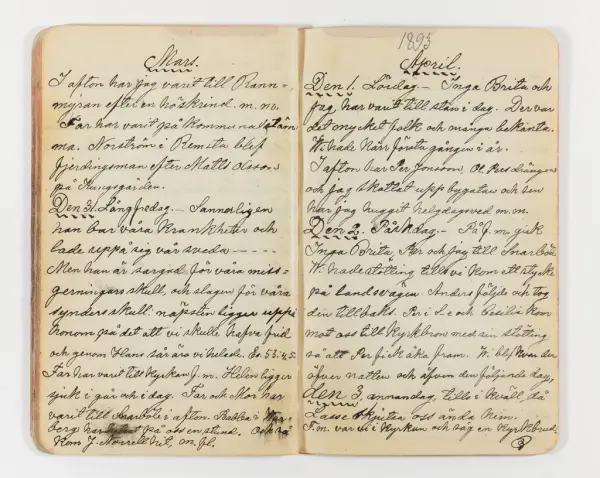 Mars.
I afton har jag varit till Rann-
myran efter en höskrind m. m.
Far har varit på kommunalstäm
ma. Norström i Remsta blef
fjerdingsman efter Matts Olsson
på Kungsgården.
Den 31. Långfredag. – Sannerligen
han bar våra Krankheter och
lade uppå sig vår sveda – – – –
Men han är sargad för våra miss-
gerningars skull, och slagen för våra
synders skull: näpsten ligger uppå
honom på det att vi skulle hafva frid
och genom Hans sår äro vi helade. Es. 53: 4,5.
Far har varit till Kyrkan f. m. Helena ligger
sjuk i går och i dag. Far och Mor har
varit till i afton.
berg har på oss en stund. Och så
kom J. Norrell hit, m. fl.
1893
April.
Den 1. Lördag. – Inga Brita och
jag har varit till stan i dag. Der var
det mycket folk och många bekanta.
W. hade Kärr första gången i år.
I afton har Per Jonsson Ol. Pers drängen
och jag skottat upp bygatan och sen
har jag huggit helgdagsved m. m.
Den 2. Påskdag. – På f. m. gick
Inga Brita, Per och jag till
W. hade stötting tills vi kom ett stycke
på landsvägen. Anders följde och tog
den tillbaks. Per i L. och Cesilia kom
mot oss till Kyrkbron med sin stötting
så att Per fick åka fram. Wi blef kvar der
öfver natten och äfven den följande dag,
den 3. annandag, tills i kväll, då
Lasse skjutsa oss ända hem.
F. m. var vi i kyrkan och såg en kyrkbrud.